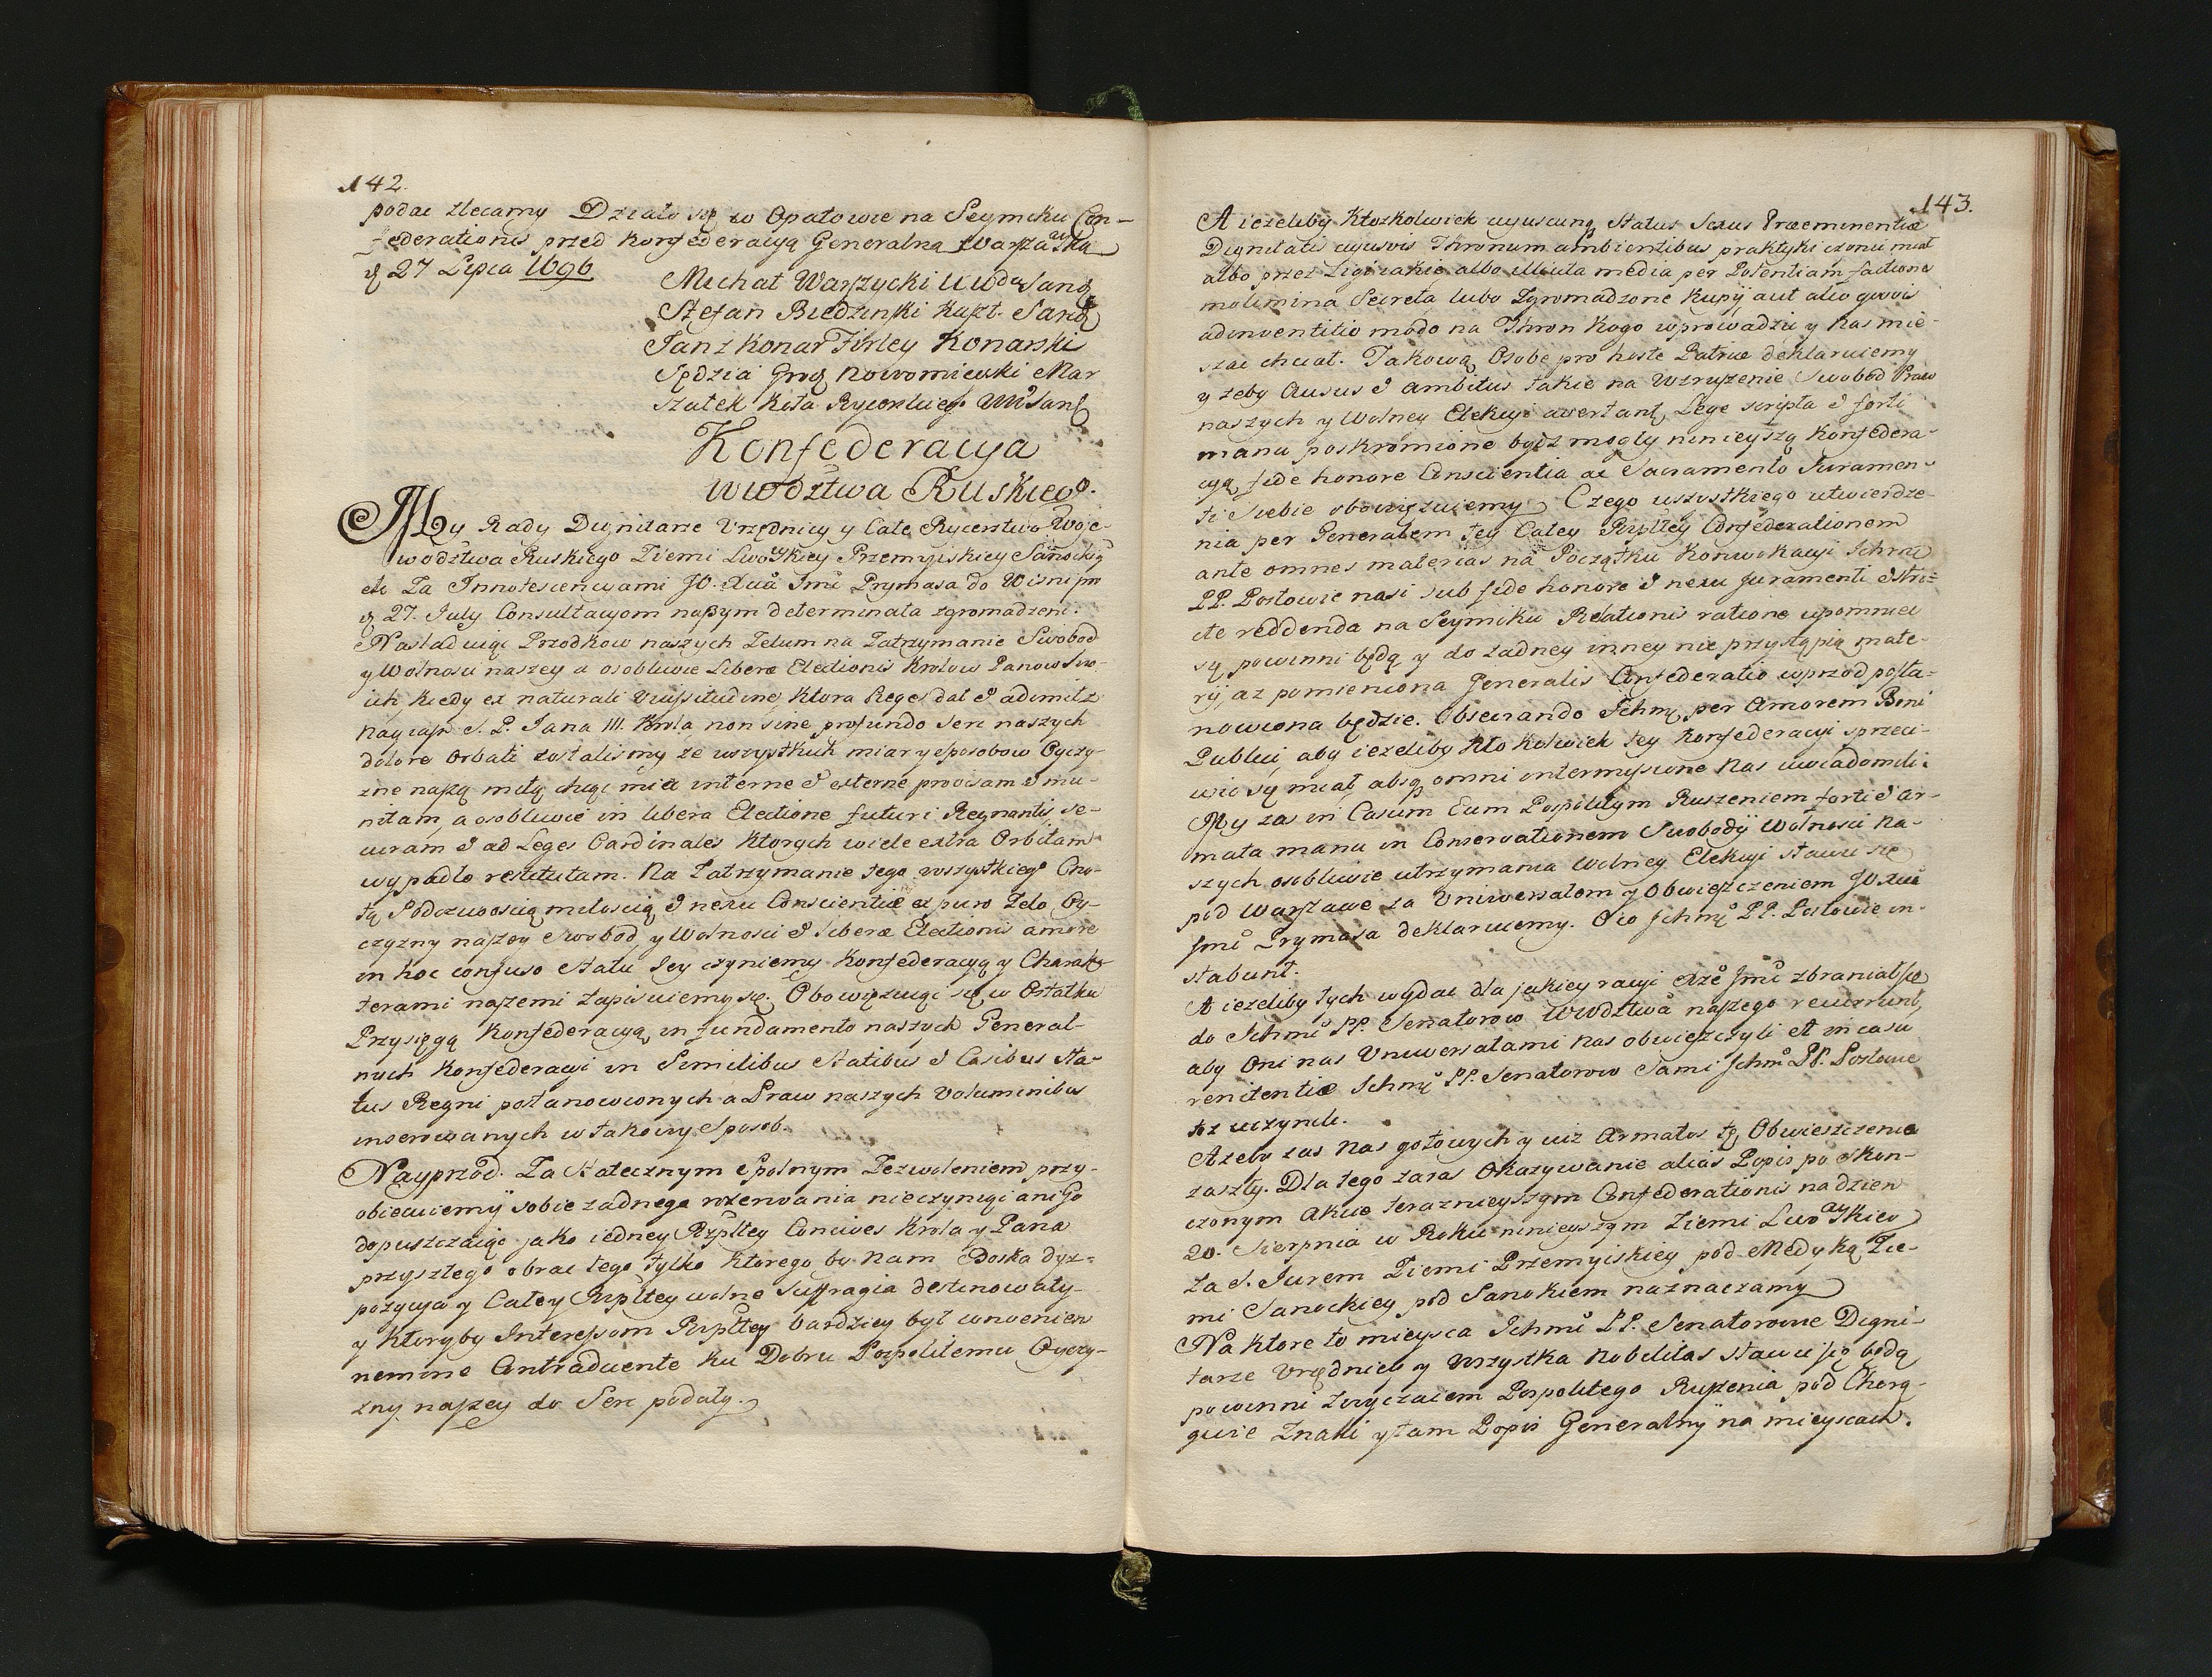 142.
podac zlecamy Działo się w Opatowie na Seymiku Con-
federationis przed Konfederacyą Generalną Warszawską
d 27 Lipca 1696
Michał Warszycki
Stefan Bidzinski Kaszt. Sand
Jan z Konar Firley Konarski
Sędzia Grod. Nowomieyski Mar
szałek Koła Rycerskiego
Konfederacya
Wwodztwa Ruskiego.
My Rady Dignitarze Vrzędnicy y Całe Rycerstwo Woje-
wodztwa Ruskiego Ziemi Lwowskiey Przemyskiey Sanockiey
etc Za Innotescencyami JO. Xcia Jmci Prymasa do Wisni pro
d 27. July Consultacyom naszym determinata zgromadzeni.
Nasladuiąc Przodkow naszych Zelum na Zatrzymanie Swobod
y Wolnosci naszey a osobliwie Liberæ Electionis Krolow Panow Swo-
ich, kiedy ex naturali Vicissitudine, ktora Reges dat & adimit z
Nayiasn S. P. Jana III. Krola non sine profundo Serc naszych
dolore Orbati zostalismy ze wszystkich miar y sposobow Oyczy-
znę naszą miłą chcąc miec interne & externe provisam & mu-
nitam, a osobliwie in libera Electione futuri Regnantis, se-
curam & ad Leges Cardinales ktorych wiele extra Orbitam
wypadło restitutam. Na Zatrzymanie tego wszystkiego Cno-
tą Podczciwoscią miłoscią & nexu Conscientiæ ex puro Zelo Oy-
czyzny naszey Swobod y Wolnosci & Liberæ Electionis amore
in hoc confuso Statu Jey czyniemy Konfederacyą y Charak-
terami naszemi zapisuiemy się. Obowięzuiąc się w Ostatku
Przysięgą Konfederacyą in fundamento naszych General-
nych Konfederacyi in Similibus Statibus & Casibus Sta-
tus Regni postanowionych a Praw naszych Voluminibus
inserowanych w takowy Sposob.
Nayprzod. Za Statecznym Spolnym Zezwoleniem przy-
obiecuiemy sobie żadnego rozerwania nieczyniąc ani Go
dopuszczaiąc jako iedney Rzpltey Concives Krola y Pana
przyszłego obrac tego tylko ktorego by Nam Boska dys-
pozycya y Całey Rzpltey wolne Suffragia destinowały
y ktoryby Interessom Rzpltey bardziey był convenien
nemine Contradicente ku Dobru Pospolitemu Oyczy-
zny naszey do Serc podały.
143.
A ieżeliby Ktozkolwiek cujuscunq Status Sexus Præeminentiæ
Dignitatis cujusvis Thronum ambientibus praktyki czynic miał
albo przez Ligi iakie albo illicita media per Potentiam factiones
molimina Secreta lubo Zgromadzone Kupy aut alio quovis
adinventitio modo na Thron Kogo wprowadzic y Nas mie-
szac chciał. Takową Osobę pro hoste Patriæ deklaruiemy
y żeby Ausus & ambitus takie na Wzruszenie Swobod Praw
naszych y Wolney Elekcyi avertant, Lege scripta & forti
manu poskromione bydz mogły ninieyszą Konfedera-
cyą, fide honore Conscientia ac Sacramento Juramen-
ti Siebie obowięzuiemy. Czego wszystkiego utwierdze-
nia per Generalem tey Całey Rzpltey Confederationem
ante omnes materias na Początku Konwokacyi Ichmc
PP. Posłowie nasi sub fide honore & nexu Juramenti &
cte reddenda na Seymiku Relationis ratione upomniec
się powinni będą y do żadney inney nie przystąpią mate-
ryi, aż pomieniona Generalis Confederatio wprzod posta-
nowiona będzie. Obsecrando Ichmc per Amorem Boni
Publici, aby ieżeliby Kto Kolwiek tey Konfederacyi sprzeci-
wic się miał absq omni intermissione Nas uwiadomili.
My zas in Casum Eum Pospolitym Ruszeniem forti & ar-
mata manu in Conservationem Swobody Wolnosci Na-
szych osobliwie utrzymania Wolney Elekcyi stawic się
pod Warszawę za Vniwersałem y Obwieszczeniem JO. Xcia
Jmci Prymasa deklaruiemy. O co Ichmc PP. Posłowie in-
stabunt.
A ieżeliby tych wydac dla jakiey racyi Xże Jmc zbraniał się
do Ichmc PP. Senatorow Wwdztwa naszego recurrent,
aby Oni nas Vniwersałami Nas obwieszczyli et in casu
renitentiæ Ichmc PP. Senatorow Sami Ichmc PP. Posłowie
toż uczynili.
A żeby zas Nas gotowych y iuż Armatos te Obwieszczenia
zaszły. Dla tego zaraz Okazywanie alias Popis po Skon-
czonym Akcie terazniejszym Confederationis na dzien
20. Sierpnia w Roku ninieyszym Ziemi Lwowskiey
za S. Jurem Ziemi Przemyskiey pod Medyką Zie-
mi Sanockiey pod Sanokiem naznaczamy
Na ktore to mieysca Ichmc PP. Senatorowie Digni-
tarze Vrzędnicy y wszystka Nobilitas stawic się będą
powinni Zwyczaiem Pospolitego Ruszenia pod Chorą-
gwie Znaki y tam Popis Generalny na mieyscach.